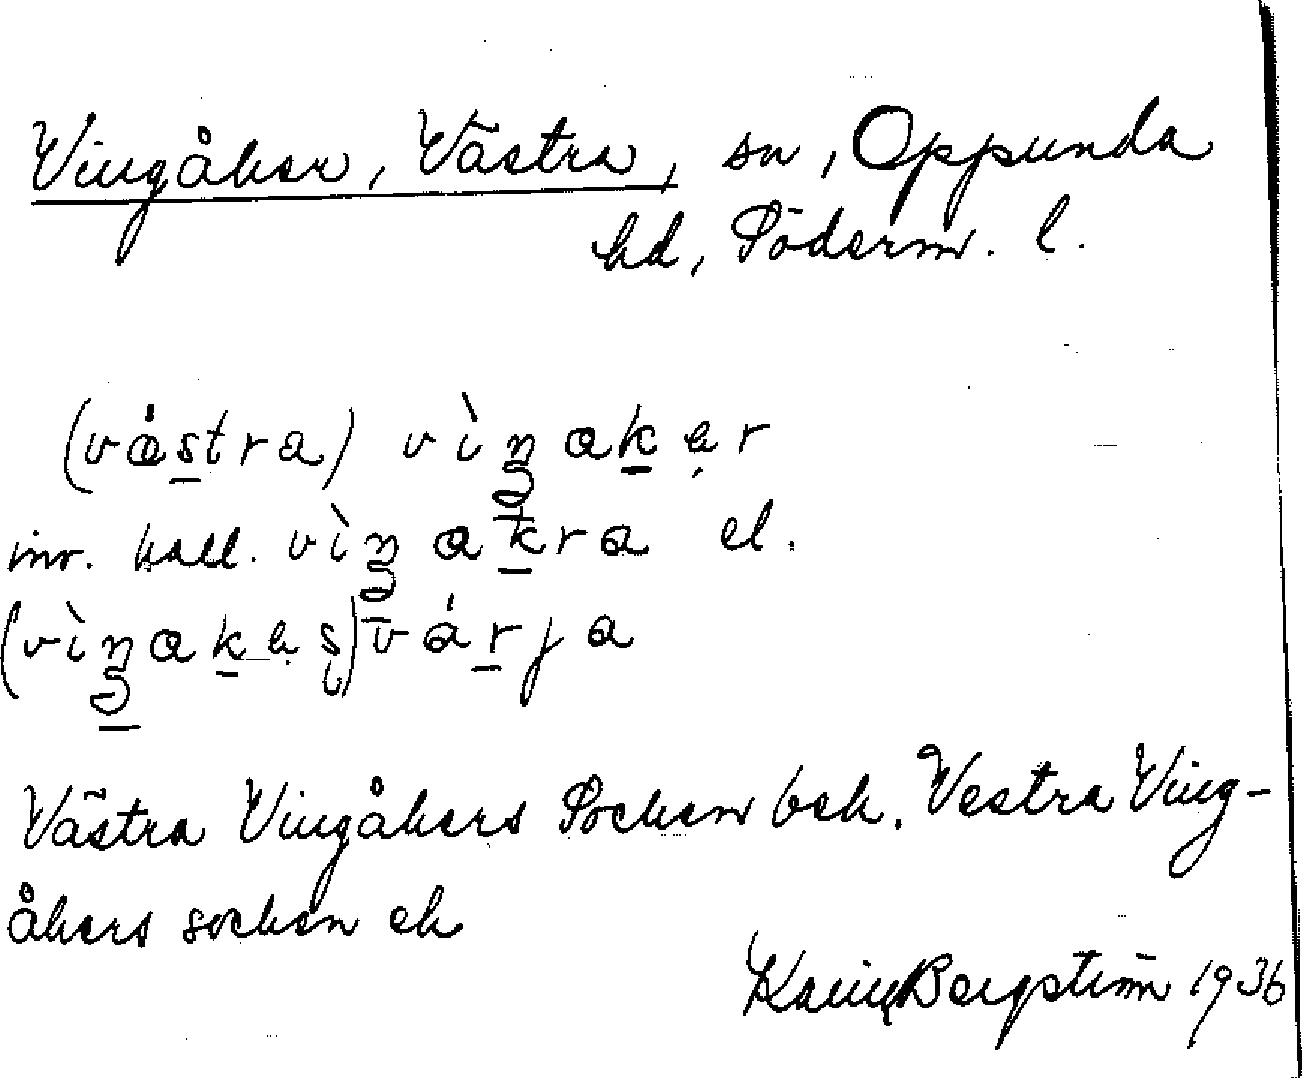 Vingåker, Västra, sn, Oppunda
hd, Söderm. l.
(västra) vìŋakər
inv. kall. vìŋakra el.
(vìŋakəş) várja
Västra Vingåkers Socken bek. Vestra Ving-
åkers socken ek
Karin Bergström 1936